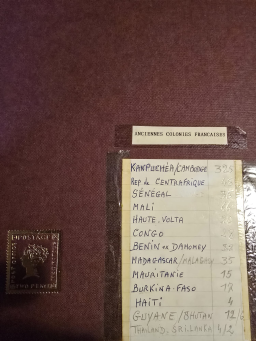 ANCIENNES COLONIES FRANCAISES
KANPUCHEA/CAMBODGE
REP de CENTRAFRIQUE
SÉNÉGAL
MALI
HAUTE VOLTA
CONGO
BENIN ou DAHOMEY 35
MADAGASCAR/MALAGASY 35
MAURITANIE 15
BURKINA FASO 18
HAITI 4
GUYANE/BHUTAN 12/6
THAILAND SRI LANKA 4/2
POSTAGE